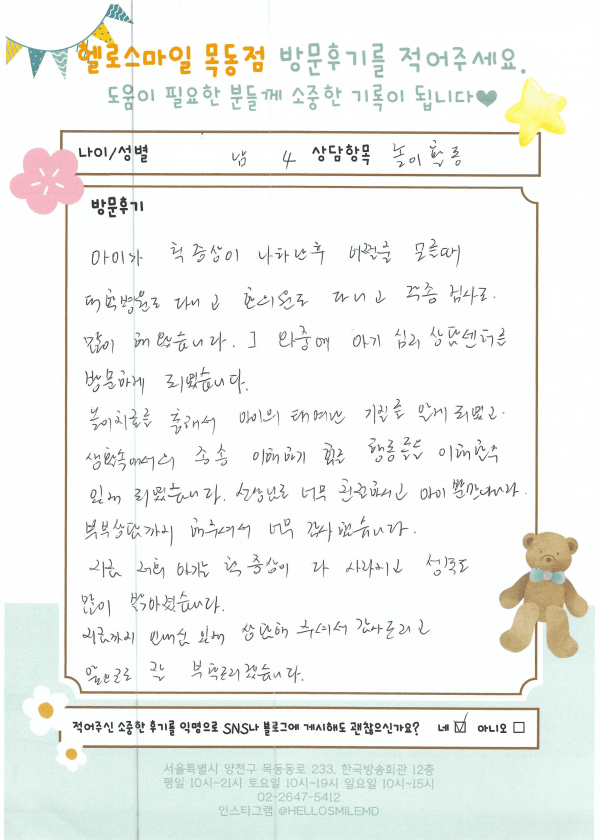 헬로스마일 목동점 방문후기를 적어주세요.
도움이 필요한 분들께 소중한 기록이 됩니다♥
나이/성별 남 4 상담항목 놀이활동
방문후기
아이가 틱 증상이 나타난후 어쩔줄 모를때
대학병원도 다니고 한의원도 다니고 각종 검사도
많이 해 봤습니다. 그 와중에 아기 심리 상담센터를
방문하게 되었습니다.
놀이치료를 통해서 아이의 태어난 기질을 알게 되었고
생활속에서의 종종 이해하기 힘든 행동들을 이해할수
있게 되었습니다. 선생님도 너무 친절하시고 아이 뿐만아니라
부부상담까지 해주셔서 너무 감사했습니다.
지금 저희 아기는 틱 증상이 다 사라지고 성격도
많이 밝아졌습니다.
지금까지 인내심 있게 상담해 주셔서 감사드리고
앞으로도 잘 부탁드리겠습니다.
적어주신 소중한 후기를 익명으로 SNS나 블로그에 게시해도 괜찮으신가요? 네 ☑ 아니오 □
서울특별시 양천구 목동동로 233, 한국방송회관 12층
평일 10시~21시 토요일 10시~19시 일요일 10시~15시
02-2647-5412
인스타그램 @HELLOSMILEMD